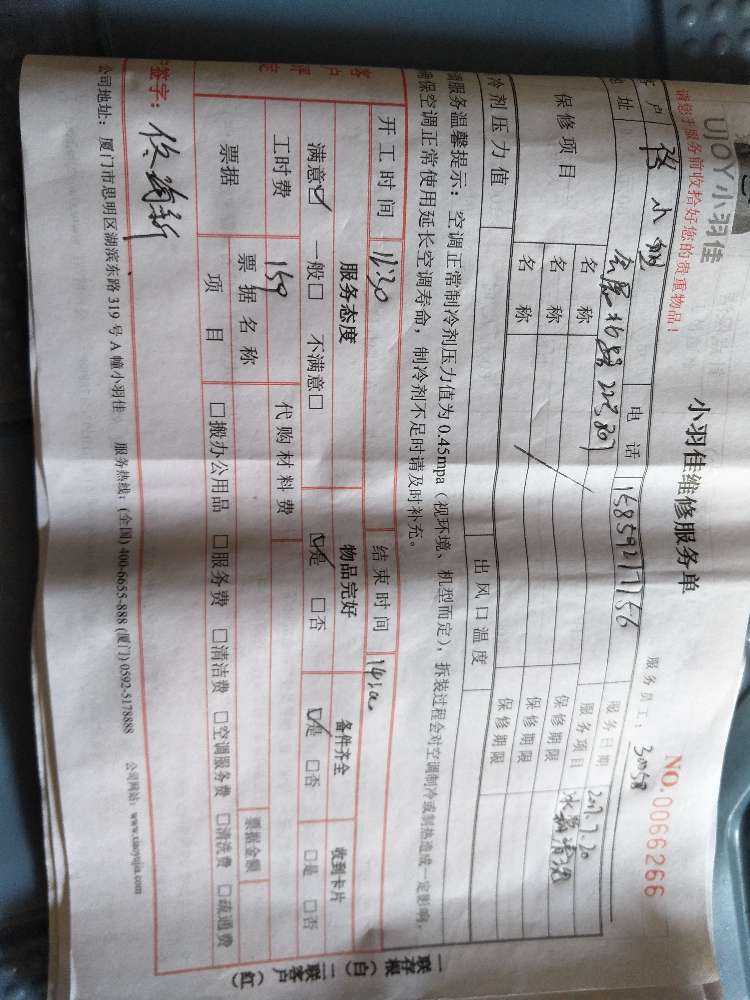 UJOY小羽佳
小羽佳维修服务单
NO.0066266
请您于服务前收拾好您的贵重物品!
服务员工: 30058
客户 小 电话 15859271156 服务日期 2017.7.20
地址 223,807 服务项目 冰箱清洗
保修项目 名称 保修期限
名称 保修期限
名称 保修期限
冷剂压力值 出风口温度
服务温馨提示:空调正常制冷剂压力值为0.45mpa(视环境、机型而定),拆装过程会对空调制冷或制热造成一定影响,
确保空调正常使用延长空调寿命,制冷剂不足时请及时补充。
开工时间 11:30 结束时间
客户 服务态度 物品完好 备件齐全 收到卡片
满意☑ 一般□ 不满意□ ☑是 □否 ☑是 □否 □是 □否
工时费 150 代购材料费
票据 票据名称 票据金额
项目 □搬办公用品 □服务费 □清洁费 □空调服务费 □清洗费 □疏通费
签字:
公司地址:厦门市思明区湖滨东路319号A幢小羽佳 服务热线:(全国)400-6655-888(厦门)0592-5178888 公司网站:www.xiaoyujia.com
一联存根(白) 二联客户(红)